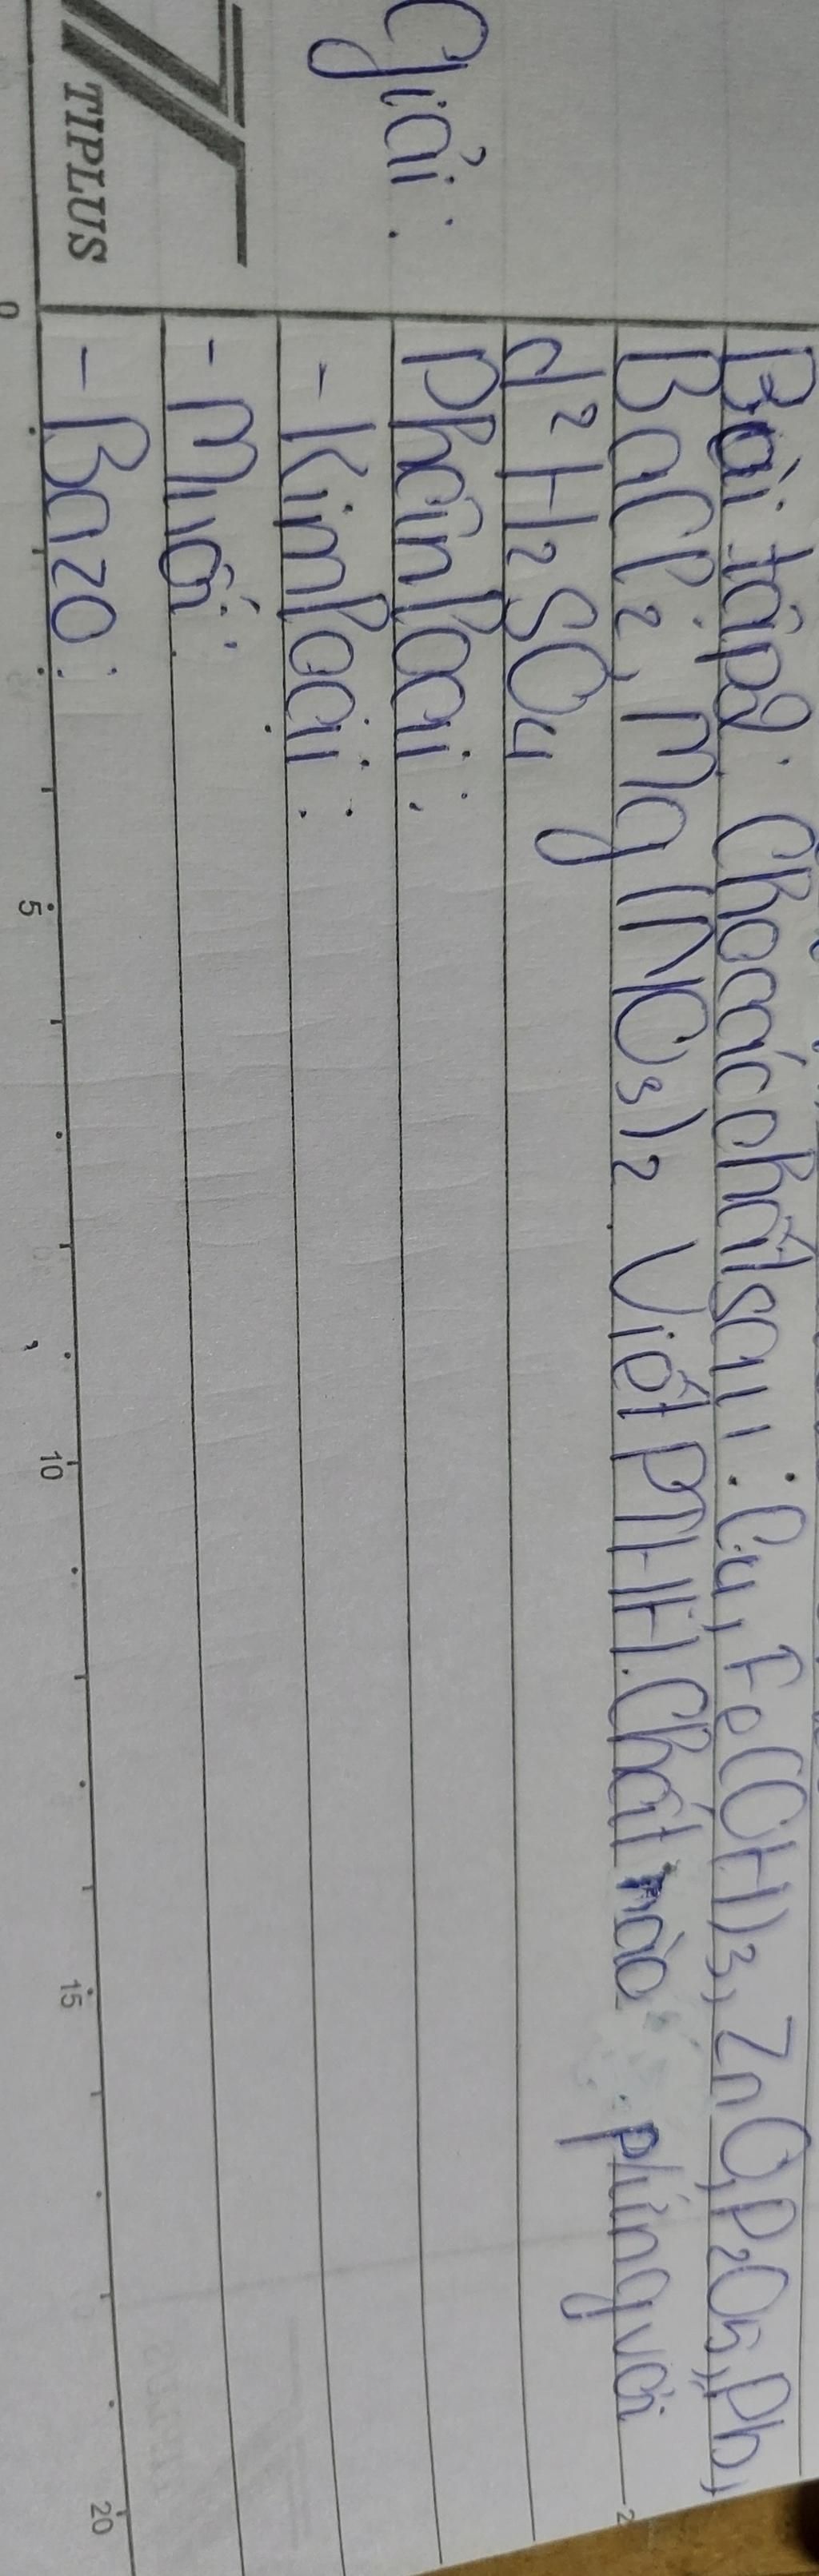 Bài tập2: Cho các chất sau: Cu, Fe(OH)3, ZnO, P2O5, Pb,
BaCl2, Mg(NO3)2 Viết PTHH. Chất nào pứng với
d² H2SO4
Giải:
Phân loại:
- Kim loại:
- Muối:
- Bazo:
TIPLUS
0 5 10 15 20
2